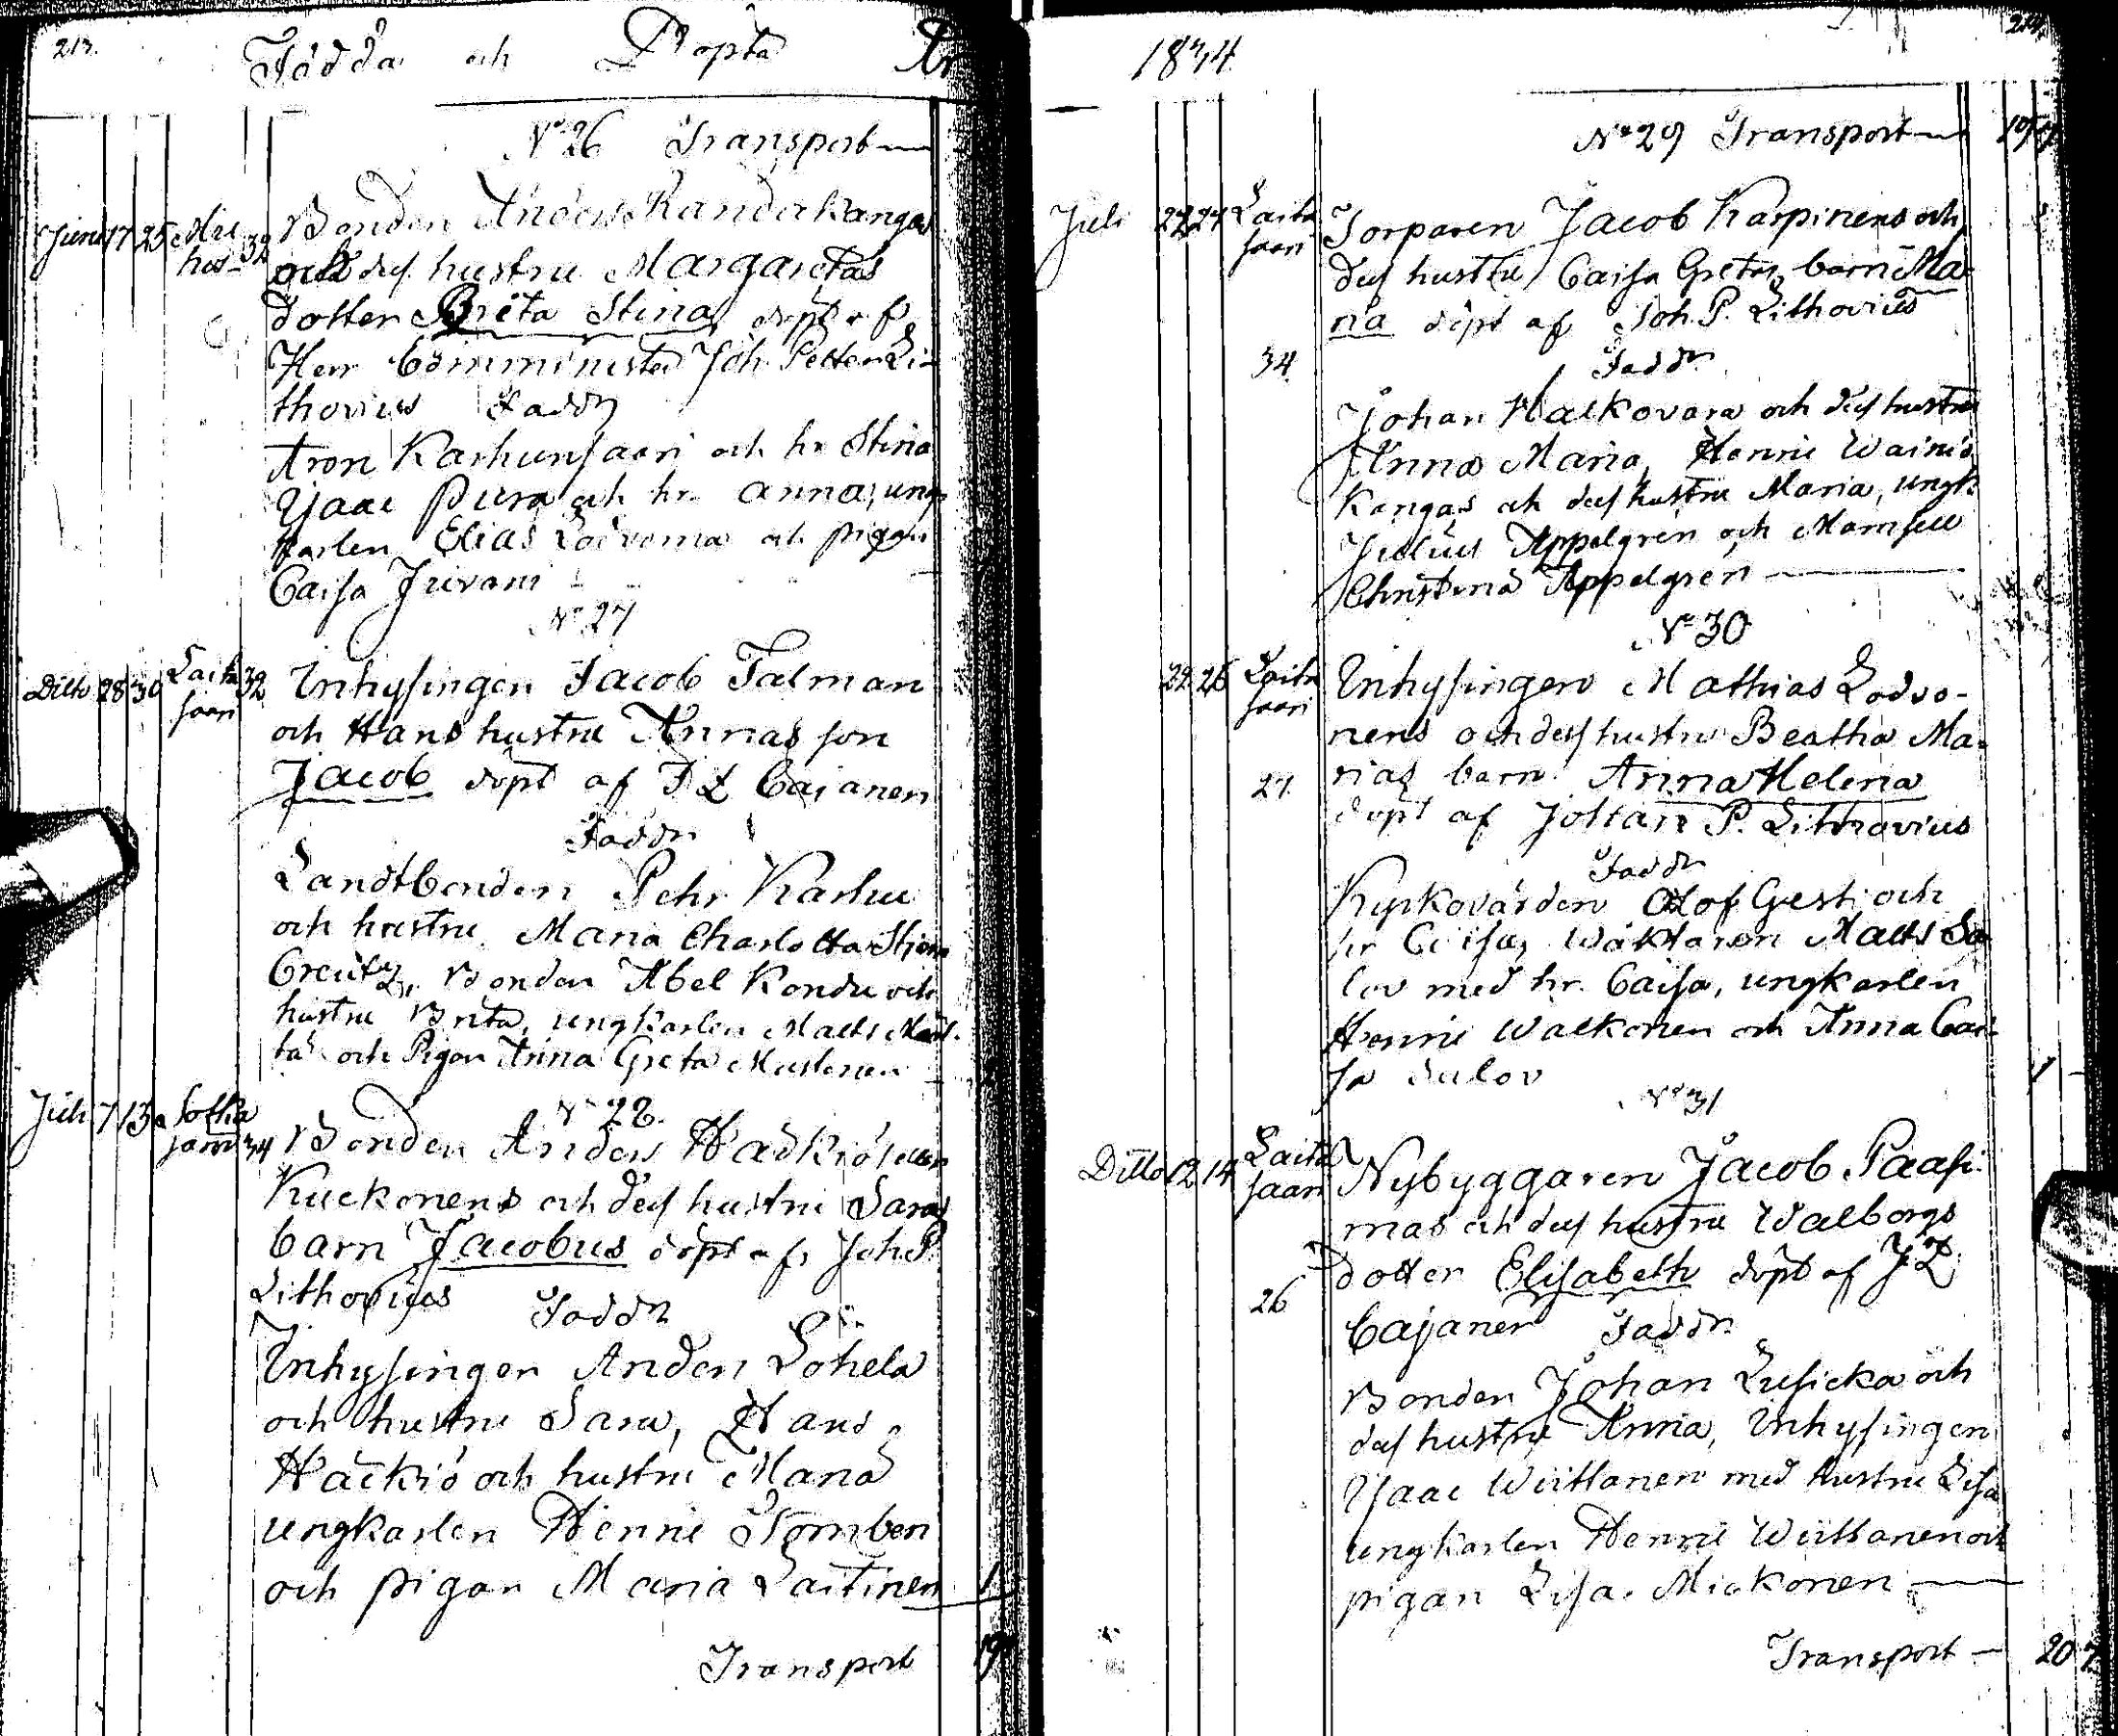 213.
Födda och Döpta År
N° 26 Transport
Juni 17 25 Mie 32 Bonden Anders Kandakangas
hos och des hustru Margaretas
dotter Brita Stina döpt af
Herr Comminister Joh. Petter Li-
thovius Faddr
Aron Karhunsaari och hr Stina
Isaac Pura och hr. Anna, ung
karlen Elias och pigan
Caisa Juvani
N° 27
Ditto 28 30 Laita 32 Inhysingen Jacob Talman
saari och Hans hustru Annas son
Jacob döpt af J Z Cajanen
Faddr
Landtbonden Pehr Karhu
och hustru Maria Charlotta Stjern
Creutz, Bonden Abel Kondu och
hustru Brita, ungkarlen Matts
och Pigan Anna Greta Mustonen
N° 28.
Juli 7 13 Sotka Bonden Anders Häckiö
saari 34 Kuckonens och des hustru Saras
barn Jacobus döpt af Joh P
Lithovius Faddr
Inhysingen Anders Lohela
och hustru Sara, Hans
Häckiö och hustru Maria
ungkarlen Henric Tomben
och pigan Maria Laitinen 1
Transport 19
1834
214.
N° 29 Transport
Juli 22 24 Laita Torparen Jacob Karpinens och
saari des hustru Caisa Gretas barn Ma-
ria döpt af Joh. P. Lithovius
34. Faddr
Johan Walkovara och des hustru
Anna Maria, Henric Wainio
Kangas och des hustru Maria, ungk
Julius Appelgren och Mamsell
Christina Appelgren
N° 30
22 26 Laita Inhysingen Mathias Lodvo-
saari nens och des hustru Beatha Ma-
27. rias barn Anna Helena
döpt af Johan P. Lithovius
Faddr
Kyrkovärden Olof Gest och
hr Caisa, Wäktaren Matts Sa
lov med hr. Caisa, ungkarlen
Henric Walkonen och Anna Cai-
sa Salov 1
N° 31
Ditto 12 14 Laita Nybyggaren Jacob Paasi-
saari mas och des hustru Walborgs
dotter Elisabeth döpt af J Z
26 Cajanen Faddr
Bonden Johan Lusicka och
des hustru Anna, Inhysingen
Isaac Wiittanen med hustru Lisa
ungkarlen Henric Wiittanen och
pigan Lisa Mickonen
Transport 20 7